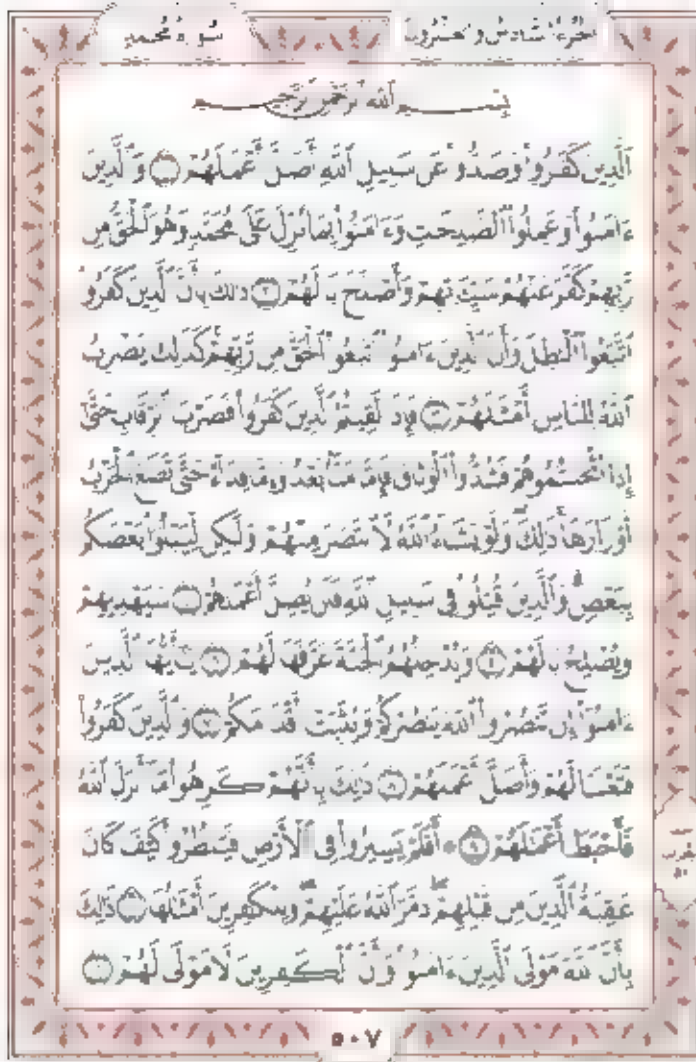 سورة محمد الجزء السادس والعشرون
بِسْمِ ٱللَّهِ ٱلرَّحْمَٰنِ ٱلرَّحِيمِ
ٱلَّذِينَ كَفَرُوا۟ وَصَدُّوا۟ عَن سَبِيلِ ٱللَّهِ أَضَلَّ أَعْمَٰلَهُمْ ۝١ وَٱلَّذِينَ
ءَامَنُوا۟ وَعَمِلُوا۟ ٱلصَّٰلِحَٰتِ وَءَامَنُوا۟ بِمَا نُزِّلَ عَلَىٰ مُحَمَّدٍ وَهُوَ ٱلْحَقُّ مِن
رَّبِّهِمْ كَفَّرَ عَنْهُمْ سَيِّـَٔاتِهِمْ وَأَصْلَحَ بَالَهُمْ ۝٢ ذَٰلِكَ بِأَنَّ ٱلَّذِينَ كَفَرُوا۟
ٱتَّبَعُوا۟ ٱلْبَٰطِلَ وَأَنَّ ٱلَّذِينَ ءَامَنُوا۟ ٱتَّبَعُوا۟ ٱلْحَقَّ مِن رَّبِّهِمْ كَذَٰلِكَ يَضْرِبُ
ٱللَّهُ لِلنَّاسِ أَمْثَٰلَهُمْ ۝٣ فَإِذَا لَقِيتُمُ ٱلَّذِينَ كَفَرُوا۟ فَضَرْبَ ٱلرِّقَابِ حَتَّىٰٓ
إِذَآ أَثْخَنتُمُوهُمْ فَشُدُّوا۟ ٱلْوَثَاقَ فَإِمَّا مَنًّۢا بَعْدُ وَإِمَّا فِدَآءً حَتَّىٰ تَضَعَ ٱلْحَرْبُ
أَوْزَارَهَا ذَٰلِكَ وَلَوْ يَشَآءُ ٱللَّهُ لَٱنتَصَرَ مِنْهُمْ وَلَٰكِن لِّيَبْلُوَا۟ بَعْضَكُم
بِبَعْضٍ وَٱلَّذِينَ قُتِلُوا۟ فِى سَبِيلِ ٱللَّهِ فَلَن يُضِلَّ أَعْمَٰلَهُمْ ۝٤ سَيَهْدِيهِمْ
وَيُصْلِحُ بَالَهُمْ ۝٥ وَيُدْخِلُهُمُ ٱلْجَنَّةَ عَرَّفَهَا لَهُمْ ۝٦ يَٰٓأَيُّهَا ٱلَّذِينَ
ءَامَنُوٓا۟ إِن تَنصُرُوا۟ ٱللَّهَ يَنصُرْكُمْ وَيُثَبِّتْ أَقْدَامَكُمْ ۝٧ وَٱلَّذِينَ كَفَرُوا۟
فَتَعْسًا لَّهُمْ وَأَضَلَّ أَعْمَٰلَهُمْ ۝٨ ذَٰلِكَ بِأَنَّهُمْ كَرِهُوا۟ مَآ أَنزَلَ ٱللَّهُ
فَأَحْبَطَ أَعْمَٰلَهُمْ ۝٩ ۞ أَفَلَمْ يَسِيرُوا۟ فِى ٱلْأَرْضِ فَيَنظُرُوا۟ كَيْفَ كَانَ
عَٰقِبَةُ ٱلَّذِينَ مِن قَبْلِهِمْ دَمَّرَ ٱللَّهُ عَلَيْهِمْ وَلِلْكَٰفِرِينَ أَمْثَٰلُهَا ۝١٠ ذَٰلِكَ
بِأَنَّ ٱللَّهَ مَوْلَى ٱلَّذِينَ ءَامَنُوا۟ وَأَنَّ ٱلْكَٰفِرِينَ لَا مَوْلَىٰ لَهُمْ ۝١١
٥٠٧